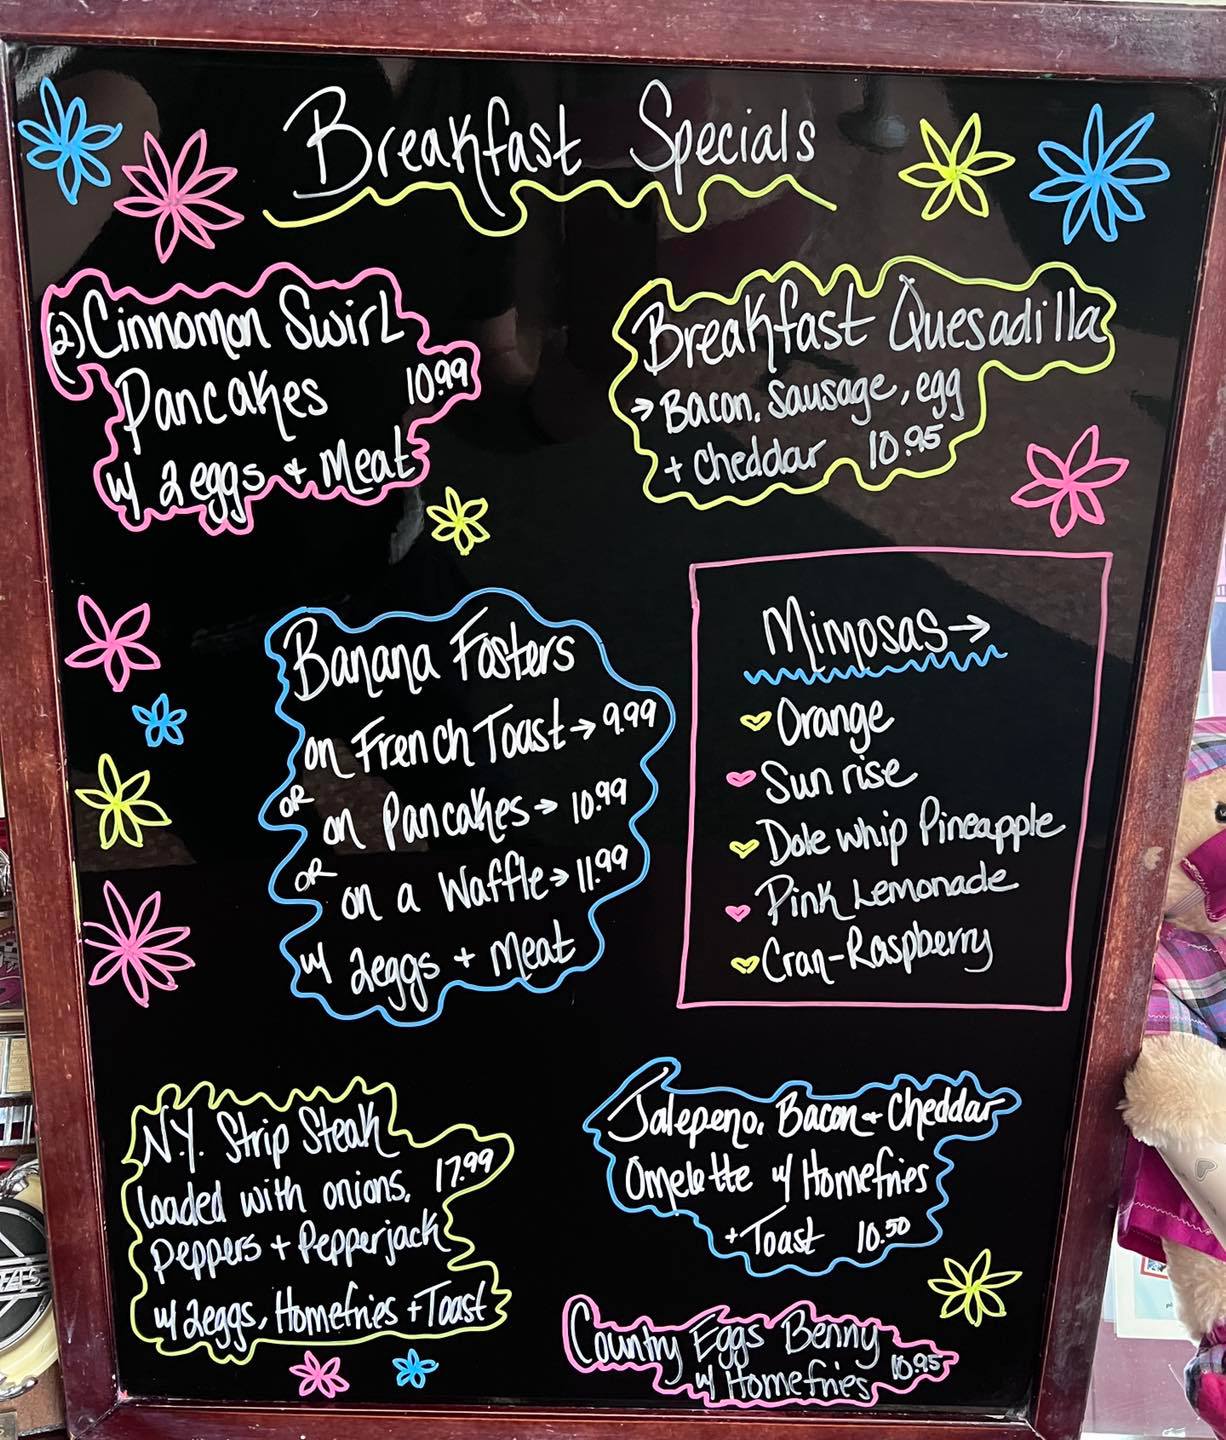 Breakfast Specials
(2) Cinnomon Swirl
Pancakes 10.99
w/ 2 eggs + Meat
Breakfast Quesadilla
→ Bacon, Sausage, egg
+ Cheddar 10.95
Banana Fosters
on French Toast → 9.99
OR on Pancakes → 10.99
OR on a Waffle → 11.99
w/ 2 eggs + Meat
Mimosas →
Orange
Sun rise
Dole Whip Pineapple
Pink Lemonade
Cran-Raspberry
N.Y. Strip Steak
loaded with onions, 17.99
Peppers + Pepperjack
w/ 2 eggs, Homefries + Toast
Jalepeno, Bacon + Cheddar
Omelette w/ Homefries
+ Toast 10.50
Country Eggs Benny
w/ Homefries 10.95